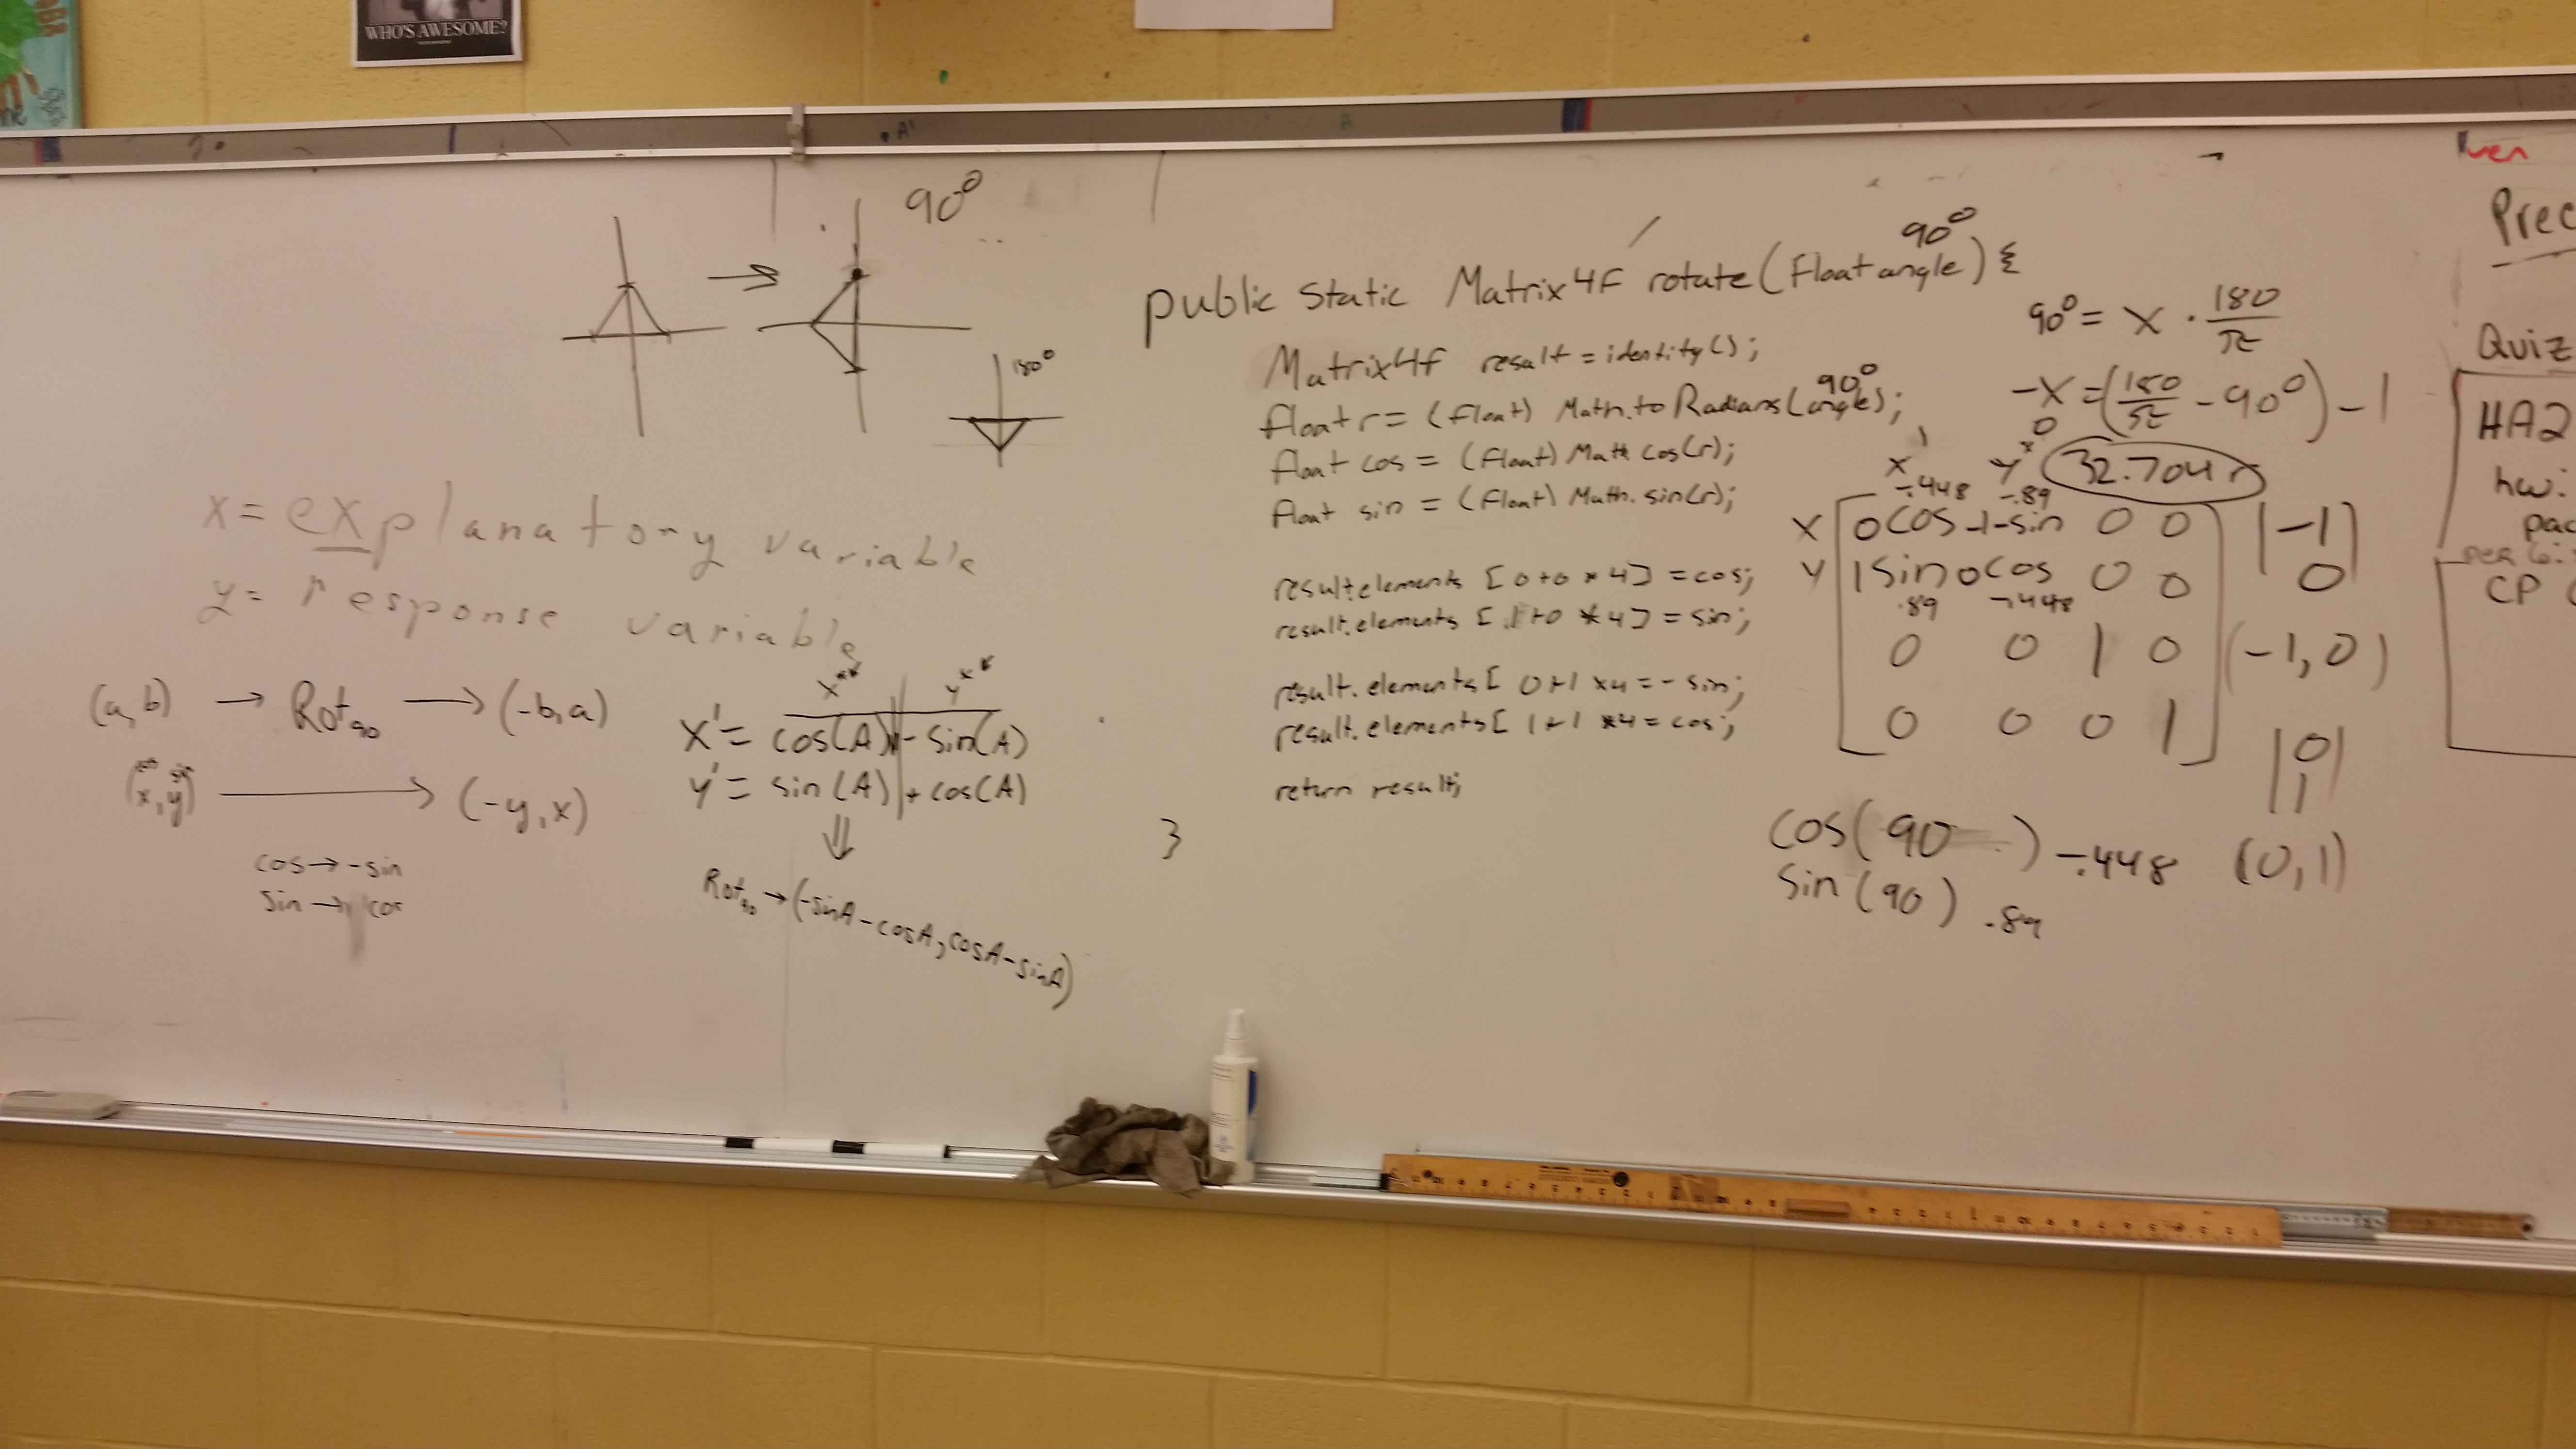 WHO'S AWESOME?
90°
180°
x = explanatory variable
y = response variable
(a,b) → Rot90 → (-b,a)
(x,y) → (-y,x)
cos → -sin
sin → cos
x y
x' = cos(A) - sin(A)
y' = sin(A) + cos(A)
⇓
Rot90 → (-sinA - cosA, cosA - sinA)
90°
public static Matrix4f rotate(float angle) {
Matrix4f result = identity();
90°
float r = (float) Math.toRadians(angle);
float cos = (float) Math cos(r);
float sin = (float) Math. sin(r);
result.elements [0+0 * 4] = cos;
result.elements [1+0 * 4] = sin;
result.elements [ 0+1 *4 = - sin;
result.elements [ 1+1 *4 = cos;
return result;
}
90° = x · 180/π
-x = (180/π - 90°) - 1
32.704 r
x y
-.448 -.89
x 0 cos -1 -sin 0 0
y 1 sin 0 cos 0 0
.89 -.448
0 0 1 0
0 0 0 1
|-1 0|
(-1, 0)
|0 1|
(0,1)
cos(90 ) -.448
sin(90) .89
Quiz
HA2
hw:
CP